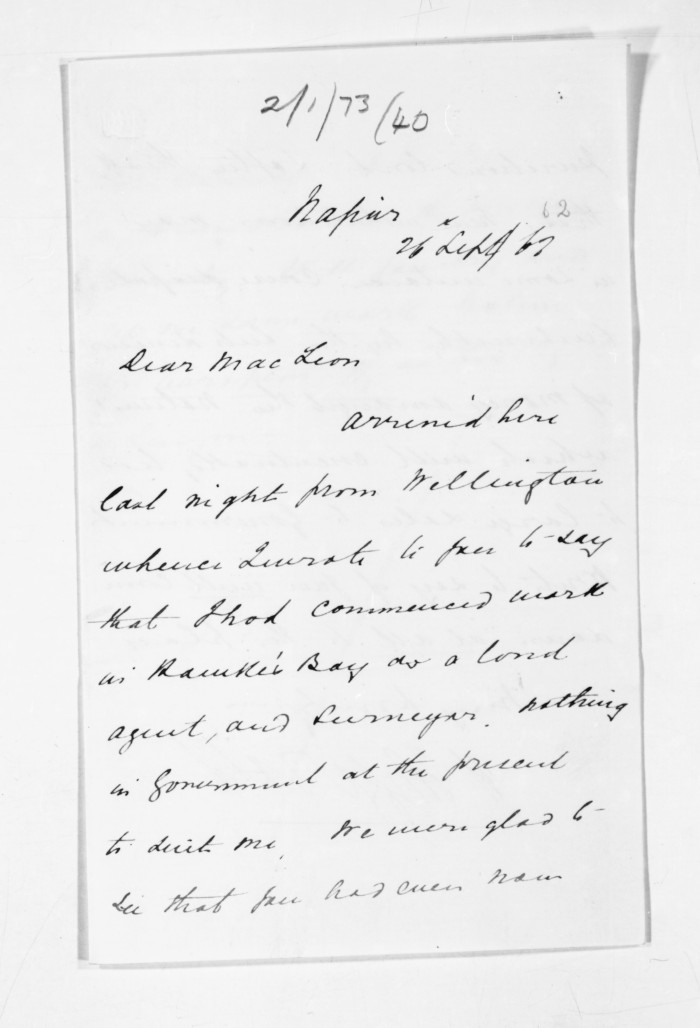 2/1/73 (40
62
Napier
26 Sept/ 67
Dear MacLean
Arrived here
last night from Wellington
whence I wrote to you to say
that I had commenced work
in Hawke's Bay as a land
agent, and Surveyor. nothing
in Government at the present
to suit me. We were glad to
see that you had